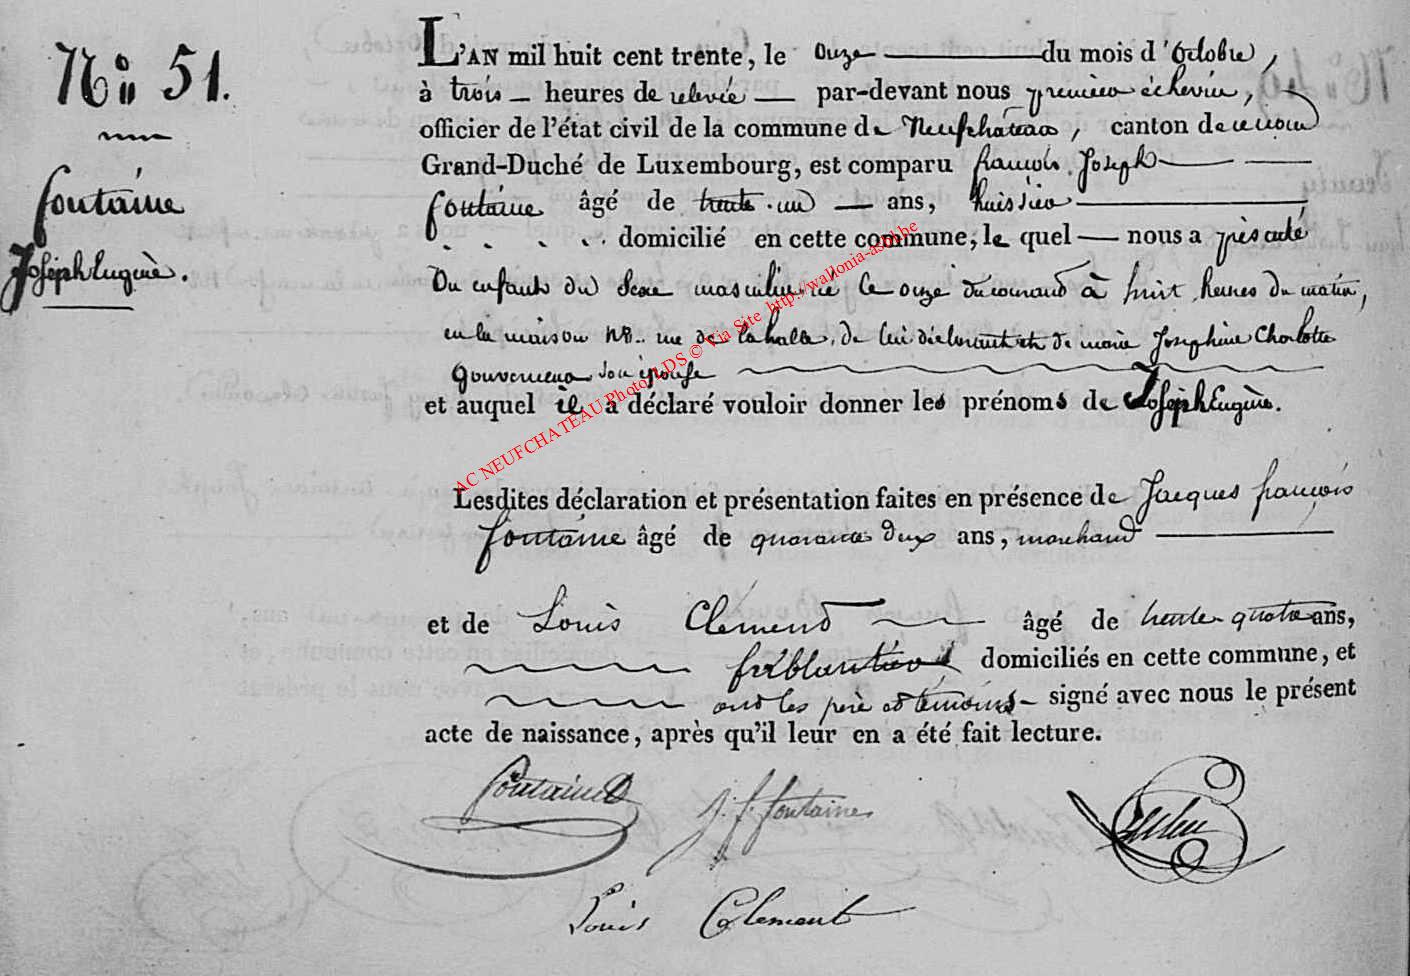 No 51.
fontaine
Joseph Eugène.
L'AN mil huit cent trente, le onze du mois d'Octobre,
à trois heures de relevée par-devant nous premier échevin,
officier de l'état civil de la commune de Neufchâteau, canton de ce nom
Grand-Duché de Luxembourg, est comparu françois Joseph
fontaine âgé de trente-un ans, huissier
domicilié en cette commune, le quel nous a présenté
Un enfant du Sexe masculin né le onze du courant à huit heures du matin,
en la maison No rue de la halle, de lui déclarant et de marie Josephine Charlotte
Gouverneur son épouse
et auquel il a déclaré vouloir donner les prénoms de Joseph Eugène.
Lesdites déclaration et présentation faites en présence de Jacques françois
fontaine âgé de quarante deux ans, marchand
et de Louis Clement âgé de trente-quatre ans,
ferblantier domiciliés en cette commune, et
ont les père et témoins signé avec nous le présent
acte de naissance, après qu'il leur en a été fait lecture.
fontaine
j. f. fontaine
Louis Clement
AC NEUFCHATEAU Photo LDS © Via Site http://wallonia-asbl.be